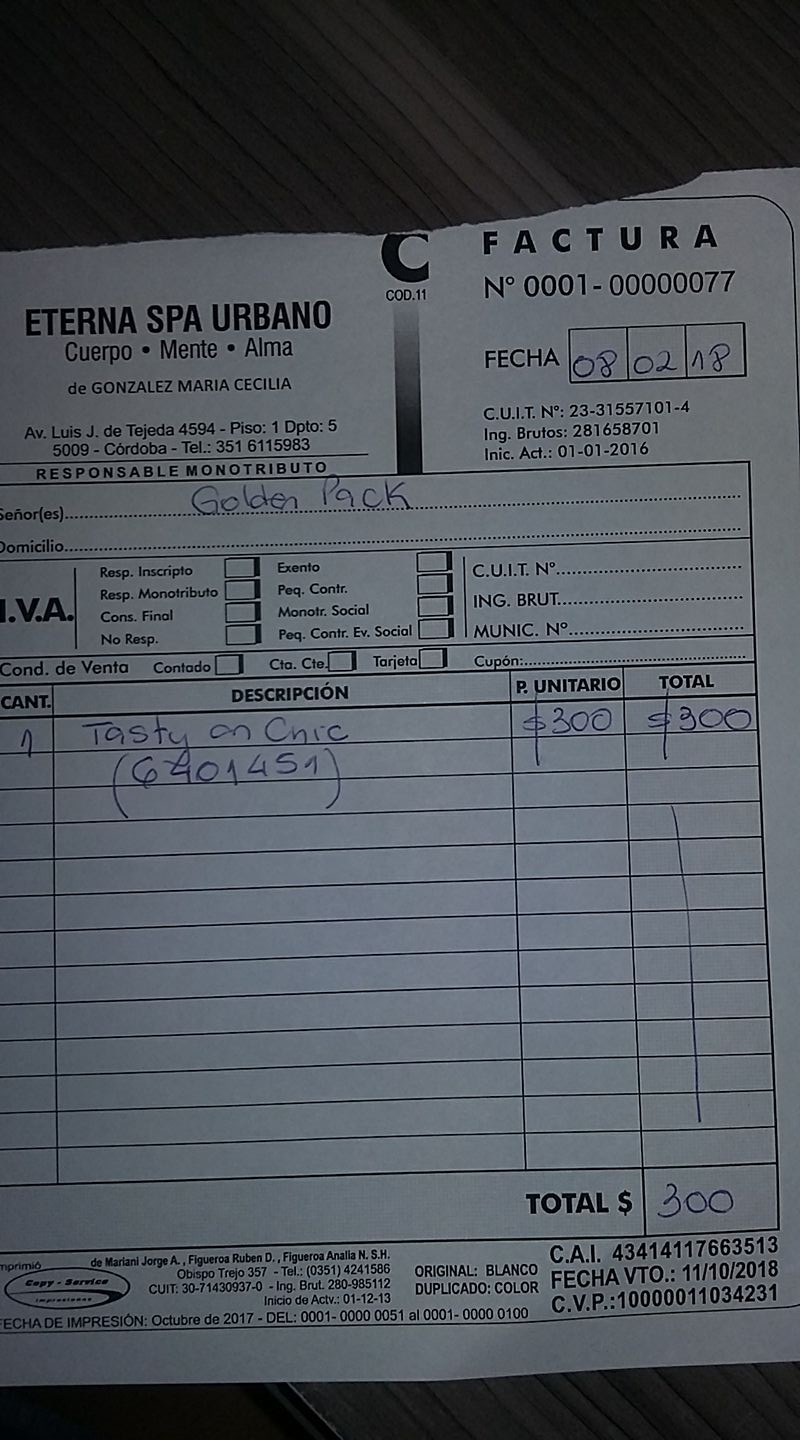 C
COD.11
FACTURA
Nº 0001-00000077
ETERNA SPA URBANO
Cuerpo • Mente • Alma
de GONZALEZ MARIA CECILIA
FECHA 08 02 18
Av. Luis J. de Tejeda 4594 - Piso: 1 Dpto: 5
5009 - Córdoba - Tel.: 351 6115983
RESPONSABLE MONOTRIBUTO
C.U.I.T. Nº: 23-31557101-4
Ing. Brutos: 281658701
Inic. Act.: 01-01-2016
Señor(es) Golden Pack
Domicilio
I.V.A.
Resp. Inscripto
Resp. Monotributo
Cons. Final
No Resp.
Exento
Peq. Contr.
Monotr. Social
Peq. Contr. Ev. Social
C.U.I.T. Nº
ING. BRUT.
MUNIC. Nº
Cond. de Venta Contado Cta. Cte. Tarjeta Cupón:
CANT. DESCRIPCIÓN P. UNITARIO TOTAL
1 Tasty on Chic $300 $300
(6401451)
TOTAL $ 300
mprimió
Copy - Service
Impresiones
de Mariani Jorge A., Figueroa Ruben D., Figueroa Analia N. S.H.
Obispo Trejo 357 - Tel.: (0351) 4241586
CUIT: 30-71430937-0 - Ing. Brut. 280-985112
Inicio de Actv.: 01-12-13
ORIGINAL: BLANCO
DUPLICADO: COLOR
C.A.I. 43414117663513
FECHA VTO.: 11/10/2018
C.V.P.:10000011034231
FECHA DE IMPRESIÓN: Octubre de 2017 - DEL: 0001- 0000 0051 al 0001- 0000 0100